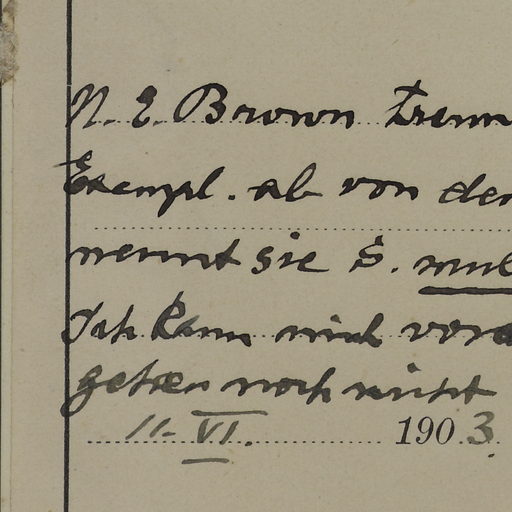 N. E. Brown trenn
Exempl. ab von den
nennt sie S. mul
Ich kann mich vora
getren noch nicht
11. VI. 1903.